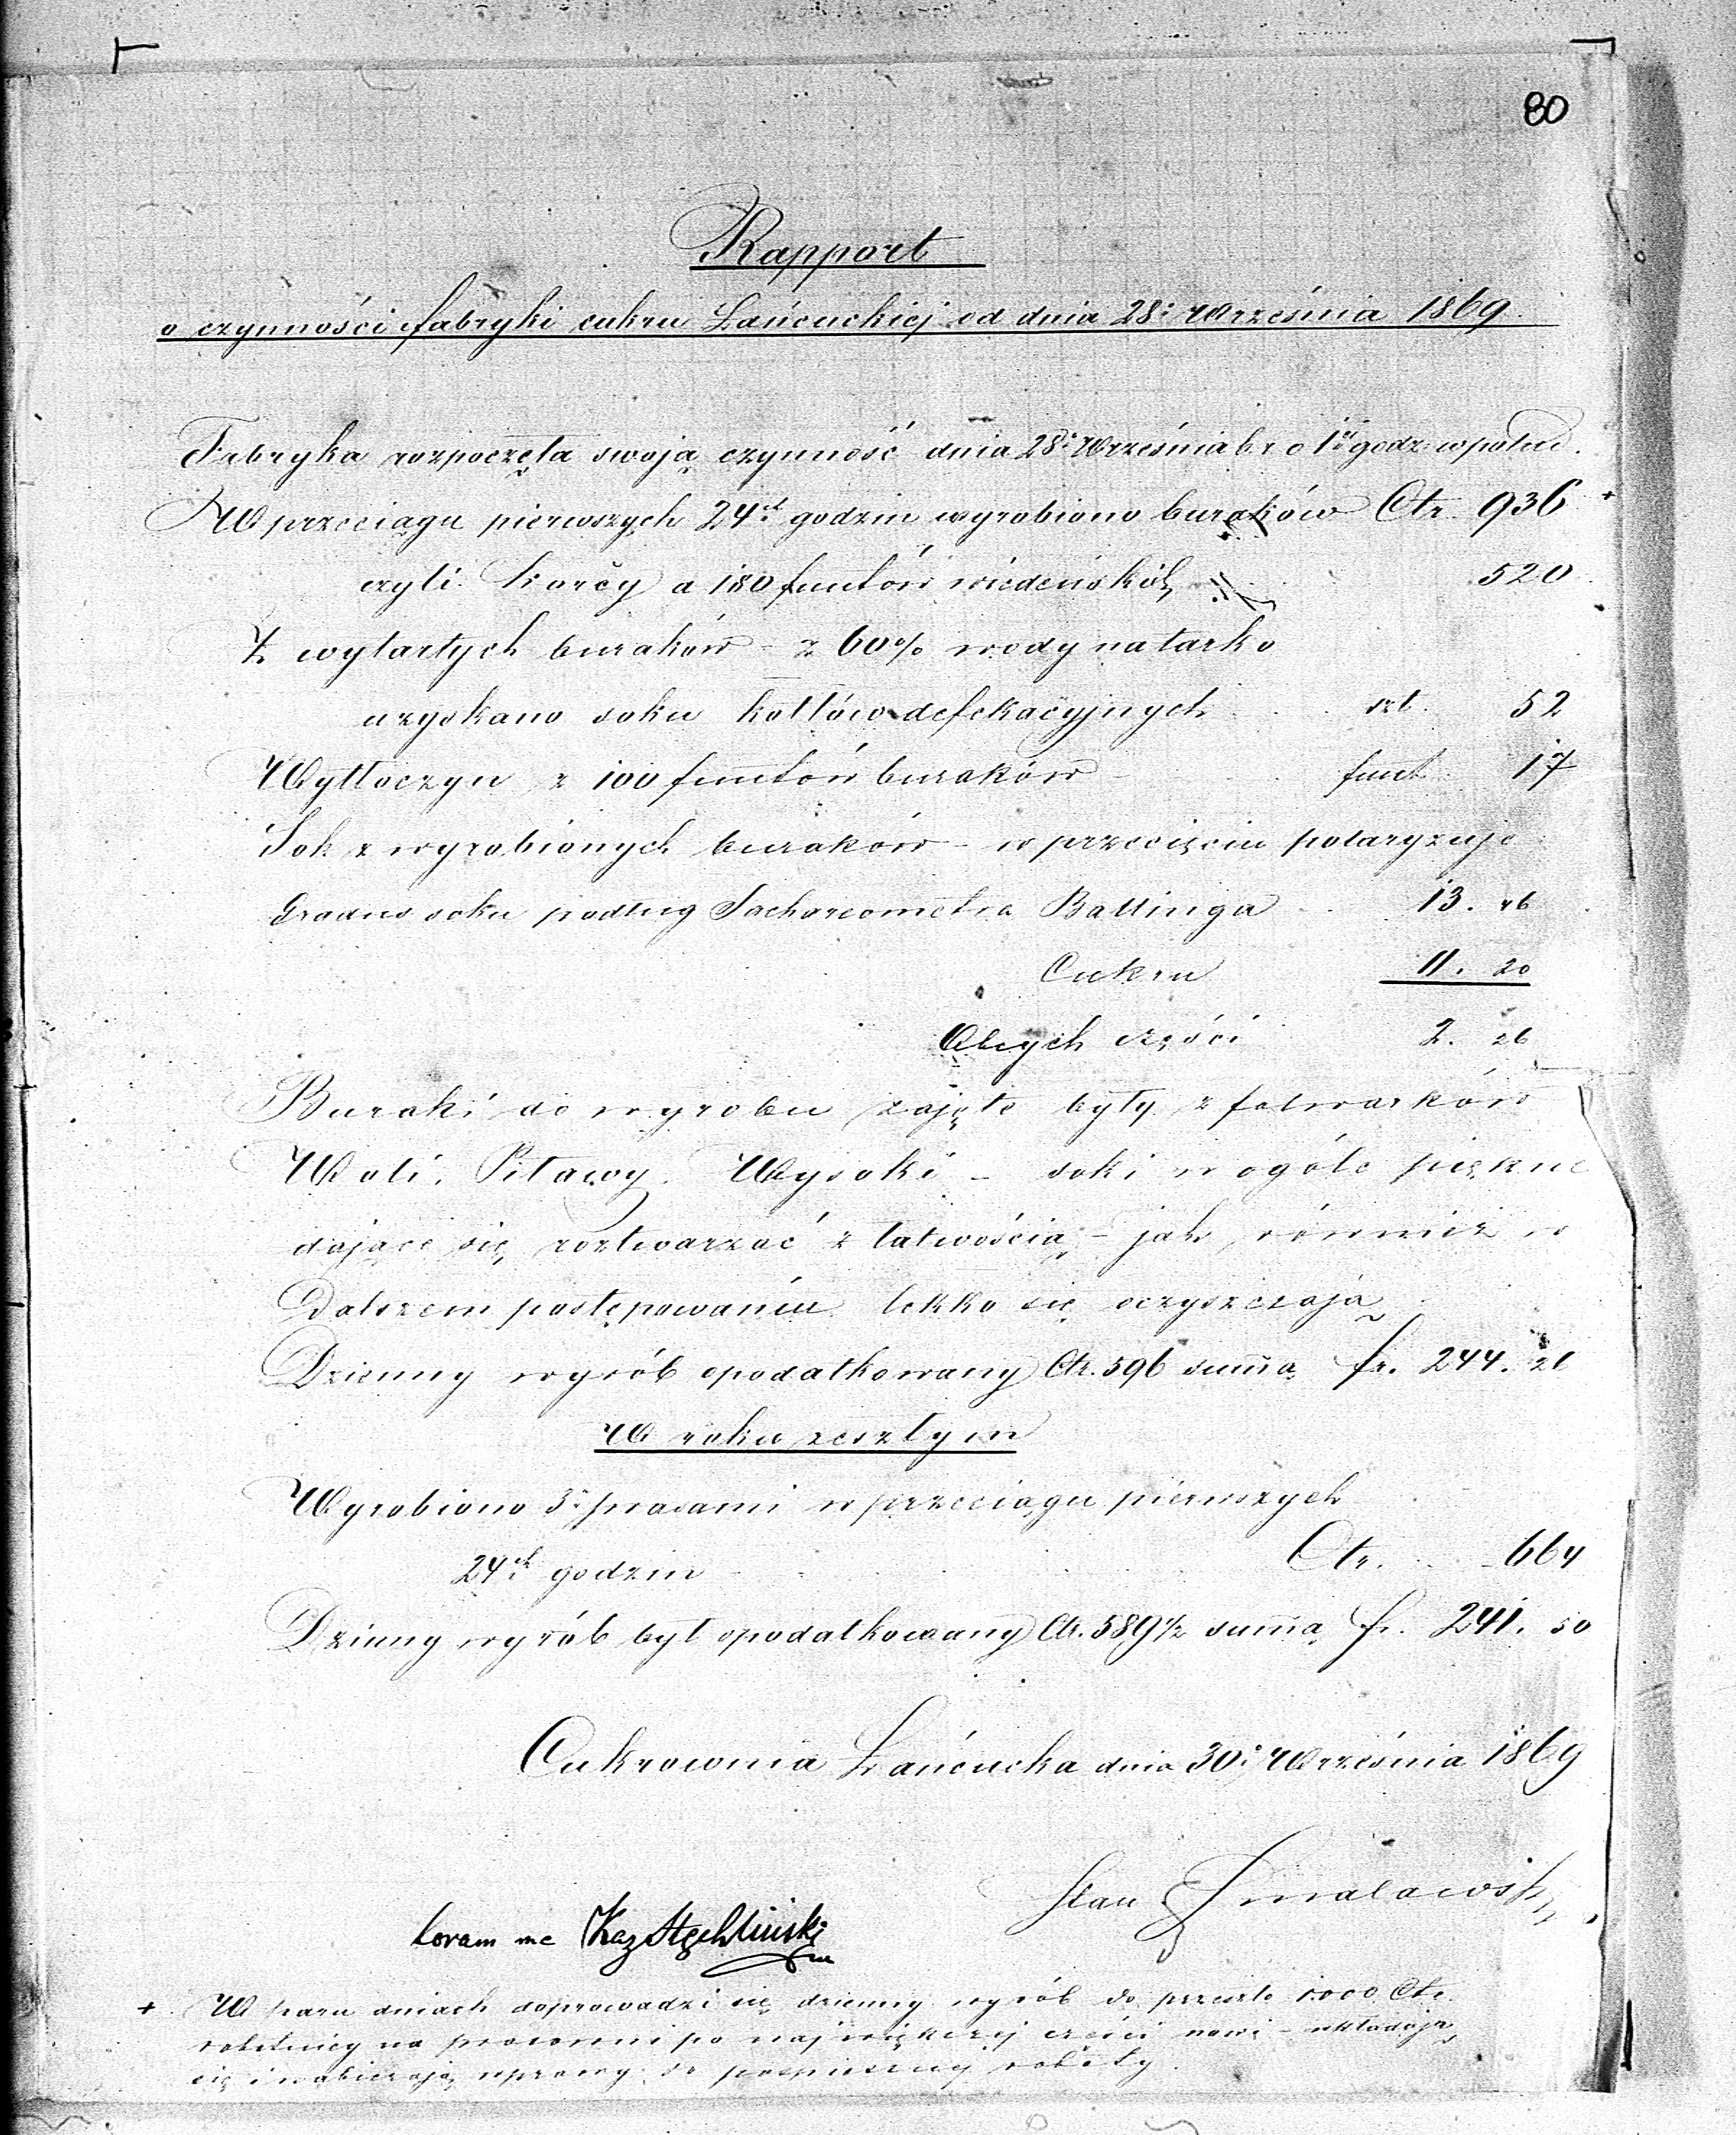 80
Rapport
o czynności fabryki cukru Łańcuckiej od dnia 28: Września 1869.
Fabryka rozpoczęła swoją czynność dnia 28: Września b. r. o 1ej godz: w połud.
W przeciągu pierwszych 24ch godzin wyrobiono buraków Ctr. 936 +
czyli Korcy a 180 funtów wiedeńskich 520
Z wytartych buraków – z 60% wody na tarko
uzyskano soku kotłów defekacyjnych szt. 52
Wytłoczyn z 100 funtów buraków funt. 17
Sok z wyrobionych buraków – w przecięciu polaryzuje
Gradus soku podług Sacharometra Ballinga 13. 46
Cukru 11. 20
Obcych części 2. 26
Buraki do wyrobu zajęte były z folwarków
Woli, Wysoki – soki w ogóle piękne
dające się roztwarzać z łatwością – jak również w
Dalszem postępowaniu lekko się oczyszczają
Dzienny wyrób opodatkowany Ctr. 596 summą fr. 244. 26
W roku zeszłym
Wyrobiono 3: prasami w przeciągu pierwszych
24ch godzin Ctr. 664
Dzienny wyrób był opodatkowany Ctr. 589½ summą fr. 241. 50
Cukrownia Łańcucka dnia 30: Września 1869
Stan
Coram me Kaz
+ W paru dniach doprowadzi się dzienny wyrób do przeszło 1000 Ctr.
robotnicy na pracowni po największej części nowi – układają
się i nabierają wprawy do pospiesznej roboty.